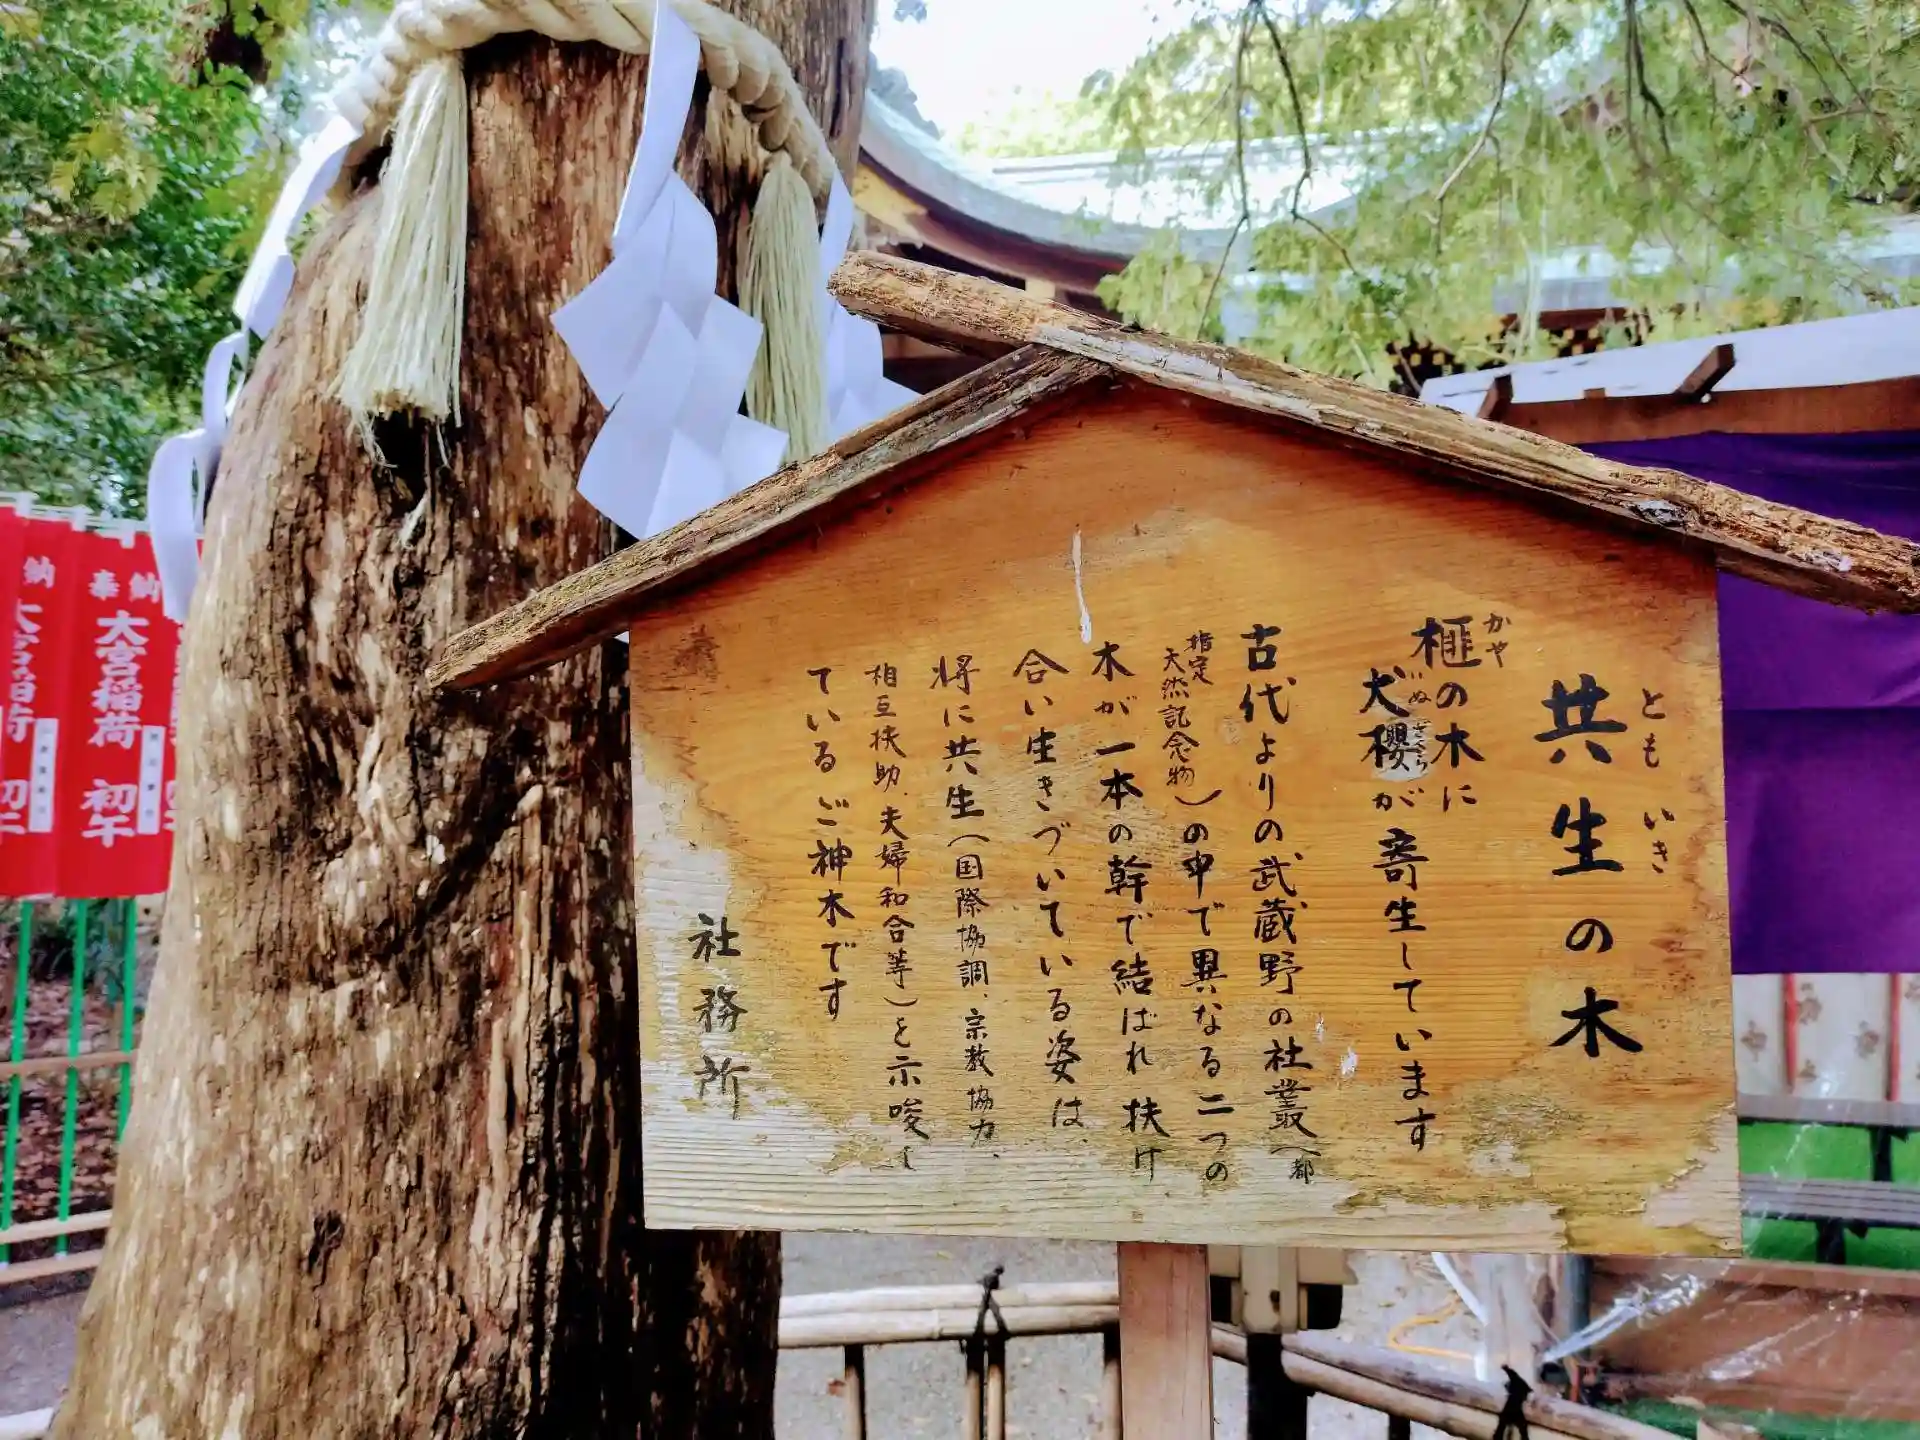 共生の木
ともいき
榧の木に
かや
犬櫻が寄生しています
いぬざくら
古代よりの武蔵野の社叢(都
指定
天然記念物)の中で異なる二つの
木が一本の幹で結ばれ扶け
合い生きづいている姿は、
将に共生(国際協調、宗教協力、
相互扶助、夫婦和合等)を示唆し
ているご神木です
社務所
奉納
大宮稲荷
初午
納
大宮稲荷
初午